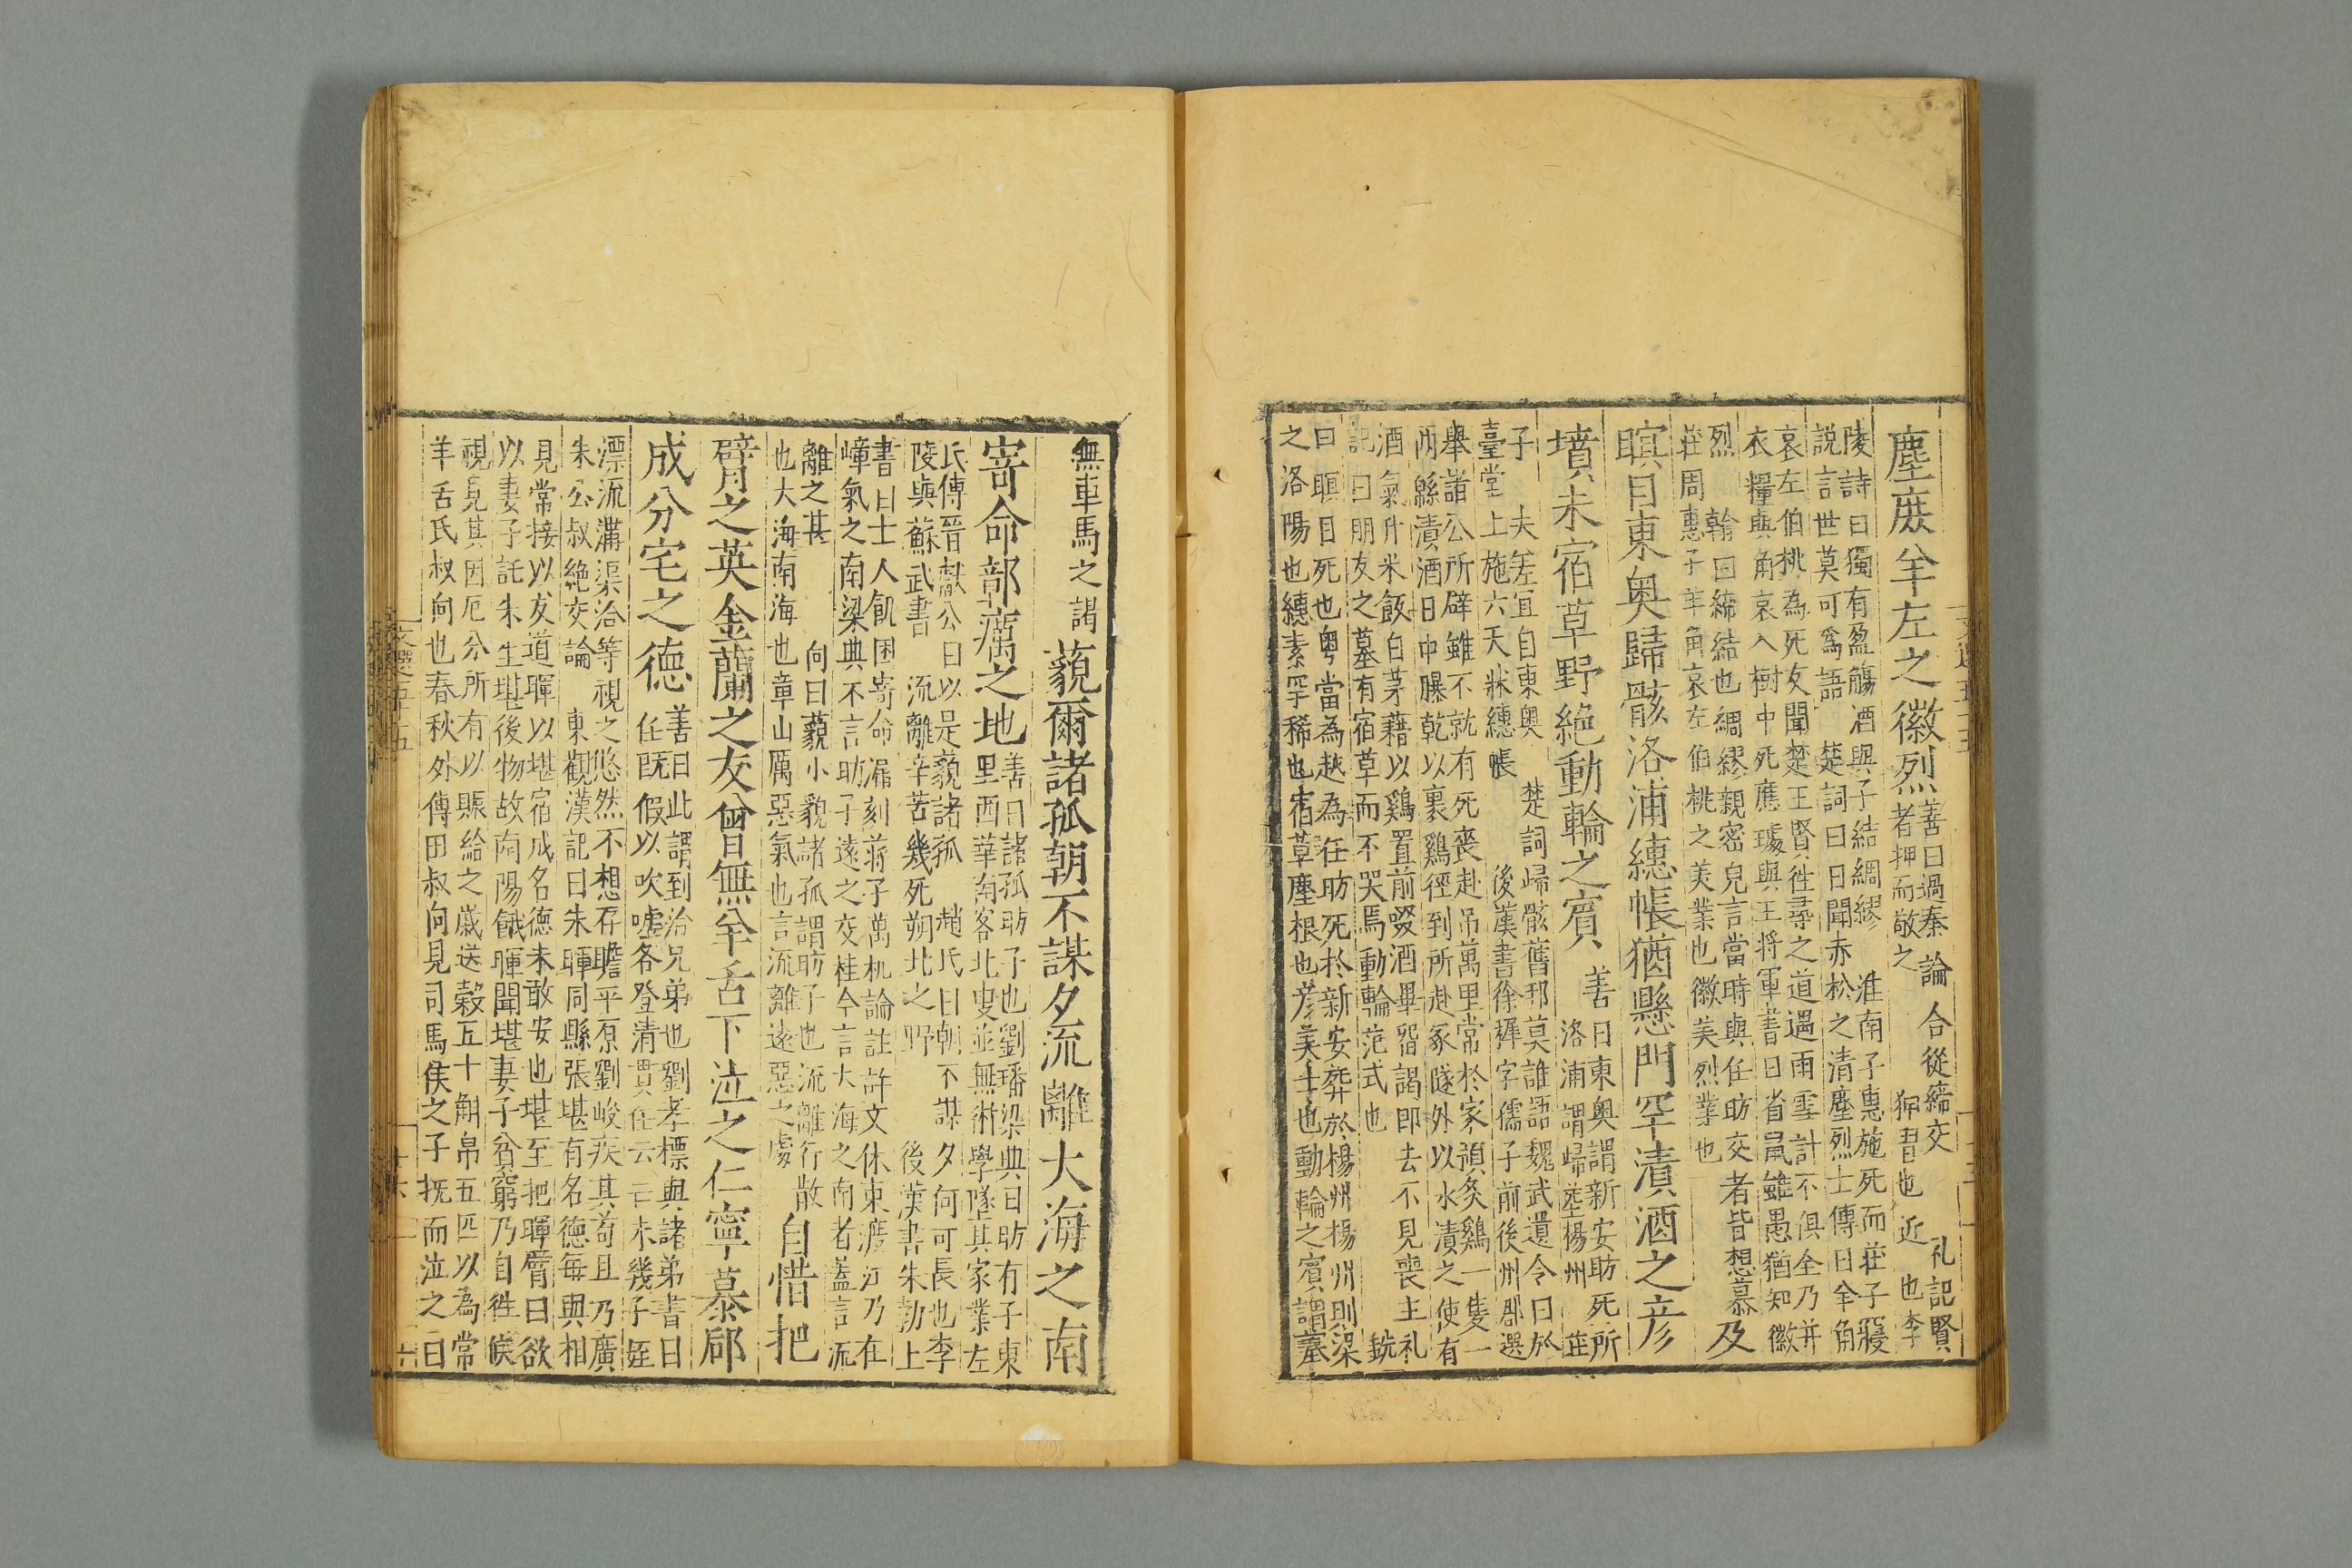 塵庶羊左之徽烈
善曰過秦論合從締交礼記賢
者押而敬之狎習也近也李
陵詩曰獨有盈觴酒與子結綢繆淮南子惠施死而莊子寑
説言世莫可為語楚詞曰日聞赤松之清塵烈士傳曰羊角
哀左伯桃為死友聞楚王賢徃尋之道遇雨雪計不俱全乃并
衣糧與角哀入樹中死應璩與王将軍書曰省鼠雖愚猶知徽
烈翰曰締結也綢繆親密皃言當時與任昉交者皆想慕及
莊周惠子羊角哀左伯桃之美業也徽美烈業也
瞑目東奥歸骸洛浦繐帳猶懸門罕漬酒之彦
墳未宿草野絶動輪之賓
善曰東奥謂新安昉死所
洛浦謂歸塟楊州莊
子夫差冝自東奥楚詞歸骸舊邦莫誰語魏武遺令曰於
臺堂上施六天牀繐帳後漢書徐穉字孺子前後州郡選
舉諸公所辟雖不就有死喪赴吊萬里常於家預炙鷄一隻一
两緜漬酒日中曝乾以裏鷄徑到所赴冢隧外以水漬之使有
酒氣升米飯白茅藉以鷄置前啜酒畢畱謁即去不見喪主礼
記曰朋友之墓有宿草而不哭焉動輪范式也銑
曰瞑目死也粤當為越為任昉死於新安葬於楊州楊州則梁
之洛陽也繐素罕稀也宿草塵根也彦美士也動輪之賓謂墓
無車馬之謁藐爾諸孤朝不謀夕流離大海之南
寄命鄣癘之地
善曰諸孤昉子也劉璠梁典曰昉有子東
里西華南客北叟並無術學墜其家業左
氏傳晉獻公曰以是藐諸孤趙氏曰朝不謀夕何可長也李
陵與蘇武書流離辛苦幾死朔北之野後漢書朱勃上
書曰士人飢困寄命漏刻蒋子萬机論註許文休東渡江乃在
嶂氣之南梁典不言昉子遠之交桂今言大海之南者蓋言流
離之甚向曰藐小貌諸孤謂昉子也流離行散
也大海南海也章山厲惡氣也言流離遠惡之處
自惜把
臂之英金蘭之友曾無羊舌下泣之仁寧慕郈
成分宅之德
善曰此謂到洽兄弟也劉孝標與諸弟書曰
任既假以吹嘘各登清貫任云亡未幾子姪
漂流溝渠洽等視之悠然不想存瞻平原劉峻疾其苟且乃廣
朱公叔絶交論東觀漢記曰朱暉同縣張堪有名德毎與相
見常接以友道暉以堪宿成名德未敢安也堪至把暉臂曰欲
以妻子託朱生堪後物故南陽餓暉聞堪妻子貧窮乃自徃候
視見其困厄分所有以賑給之歲送榖五十斛帛五匹以為常
羊舌氏叔向也春秋外傳曰叔向見司馬侯之子抚而泣之曰